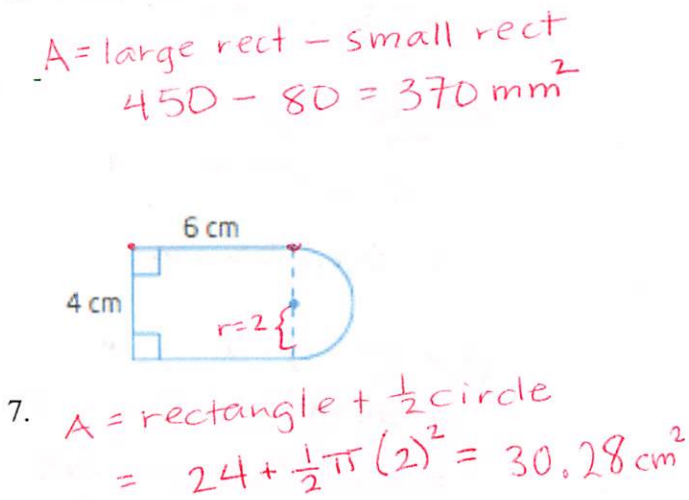 A = large rect - small rect
450 - 80 = 370 mm²
6 cm
4 cm
r=2{
7. A = rectangle + ½ circle
= 24 + ½ π (2)² = 30.28 cm²